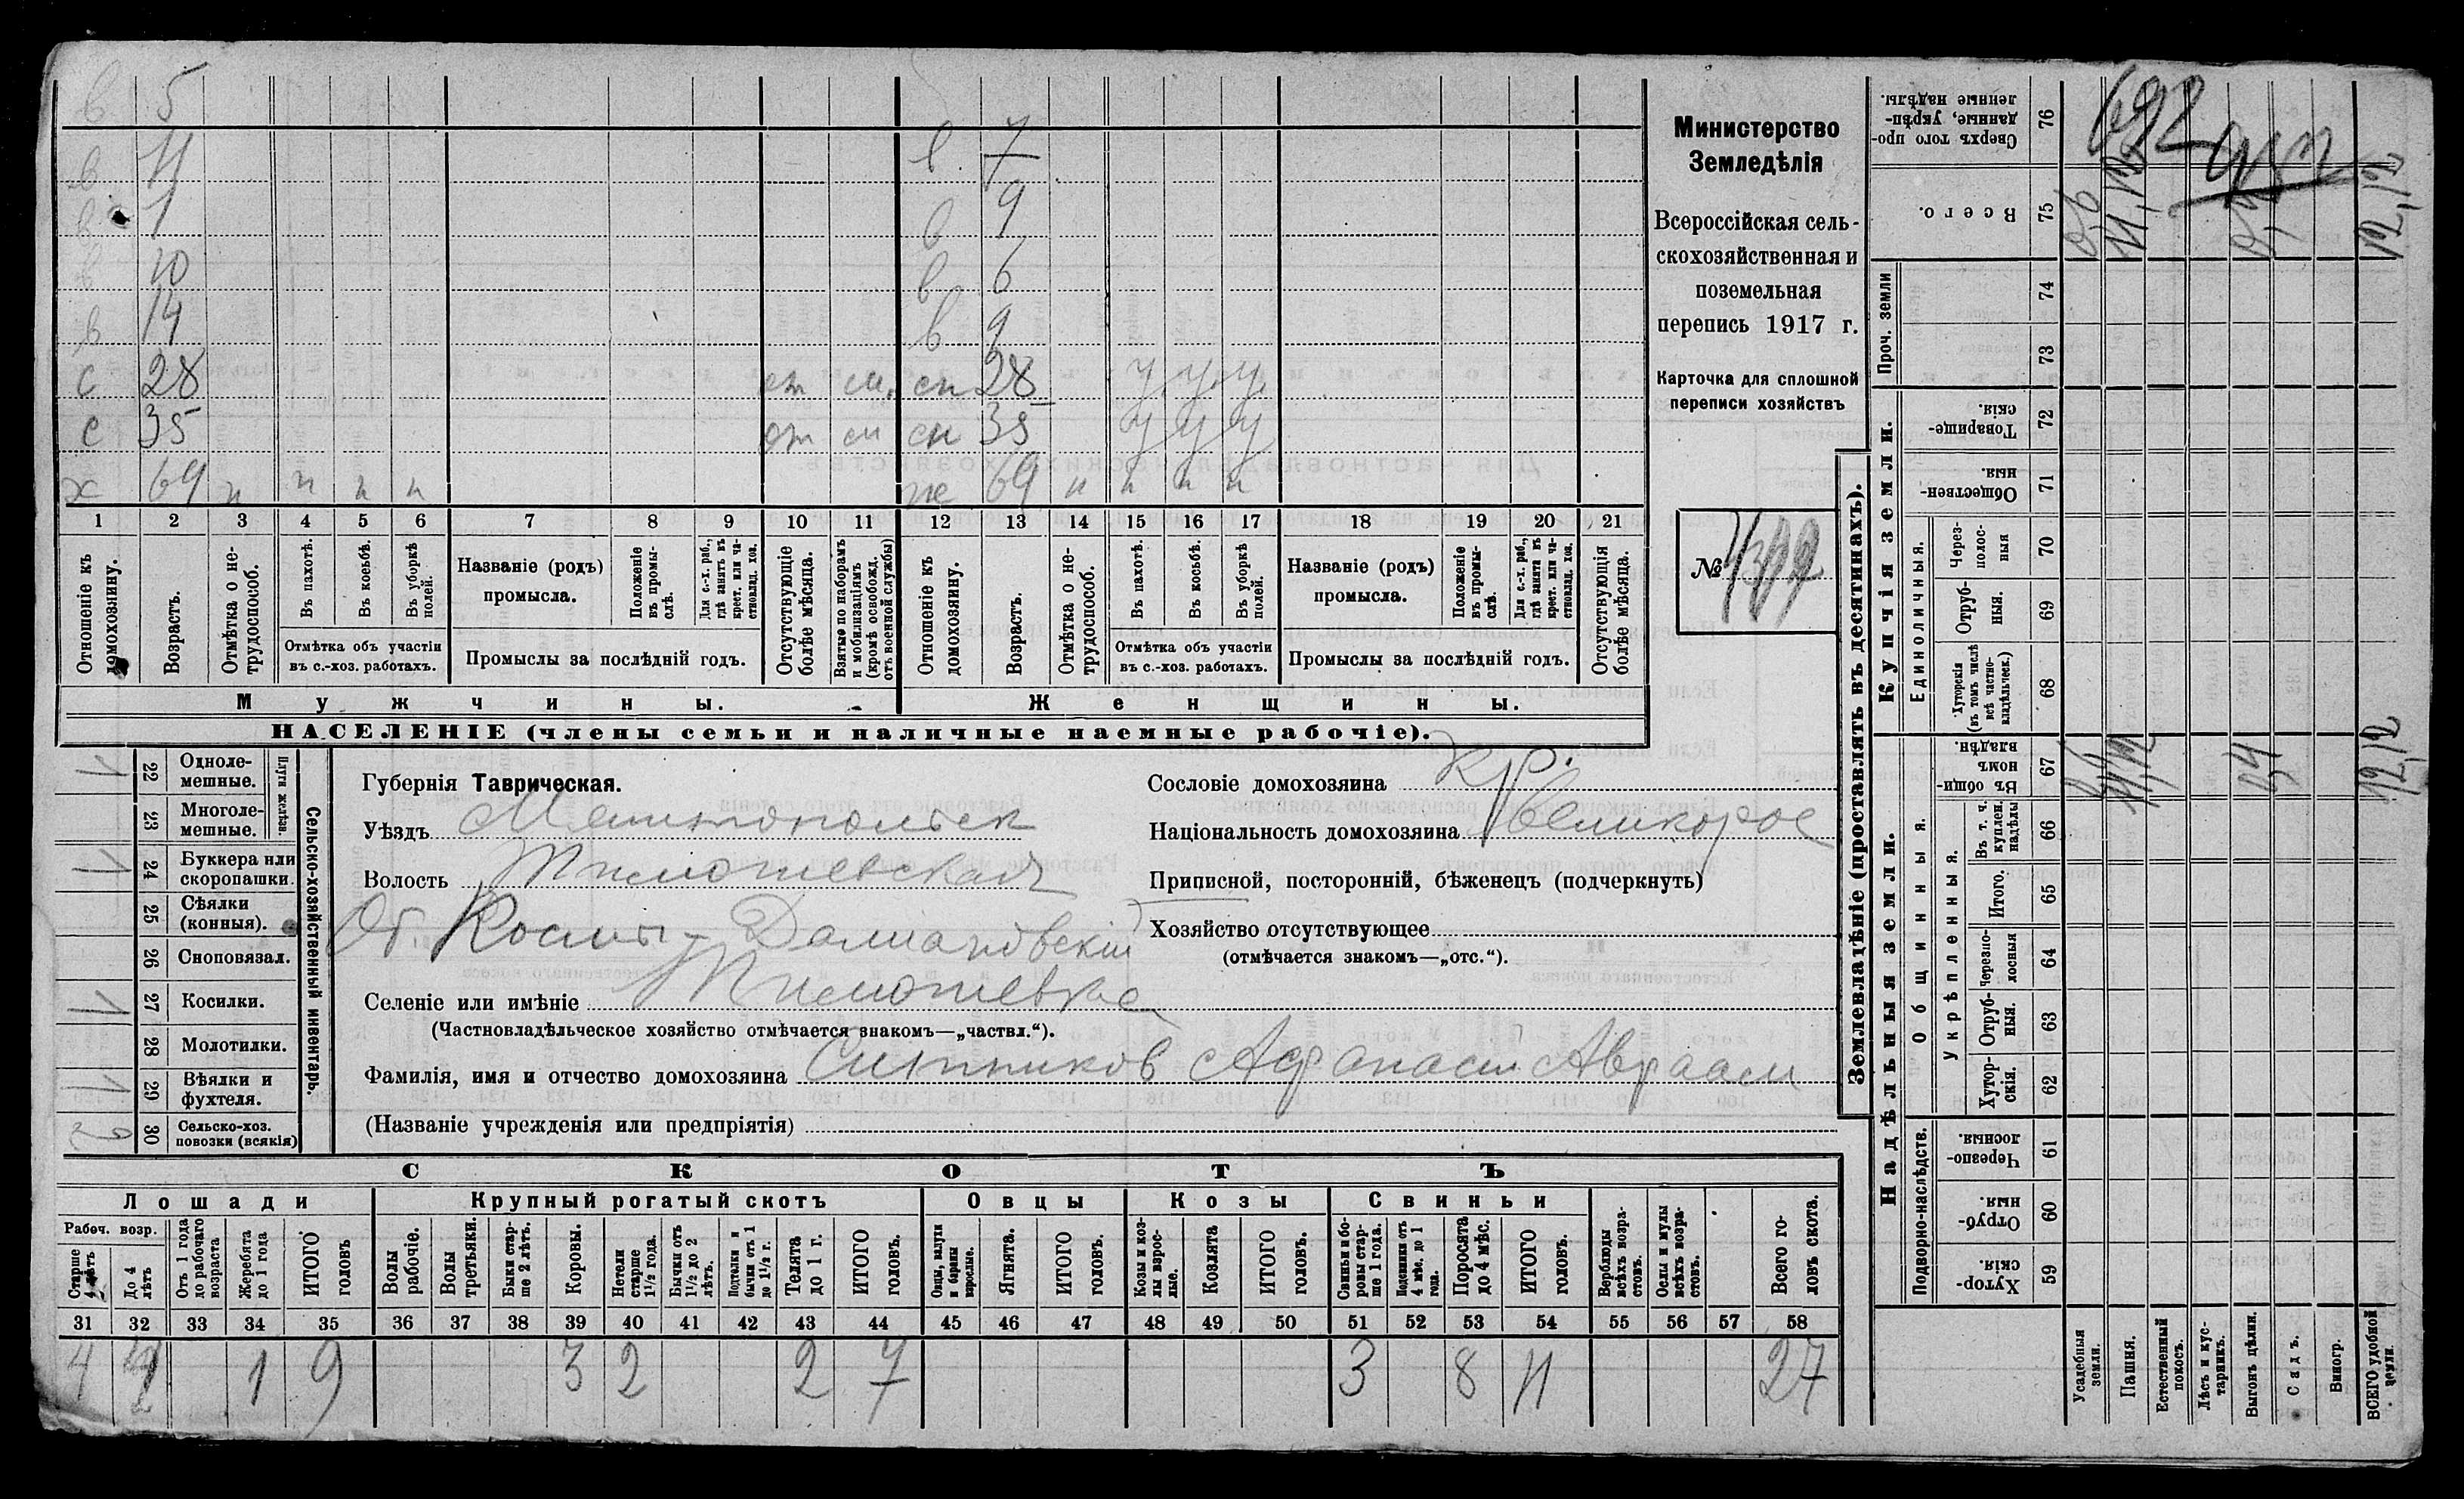 в 5
в 11 в 7
в 1 в 9
в 10 в 6
в 14 в 9
с 28 от см. сн 28 у у у
с 35 от см сн 35 у у у
х 69 н н н н ж 69 н н н н
1 2 3 4 5 6 7 8 9 10 11 12 13 14 15 16 17 18 19 20 21
Отношеніе къ домохозяину.
Возрастъ.
Отмѣтка о нетрудоспособ.
Въ пахотѣ.
Въ косьбѣ.
Въ уборкѣ полей.
Отмѣтка объ участіи
въ с.-хоз. работахъ.
Названіе (родъ)
промысла.
Положеніе въ промыслѣ.
Для с.-х. раб., гдѣ занятъ въ крест. или частновлад. хоз.
Промыслы за послѣдній годъ.
Отсутствующіе болѣе мѣсяца.
Взятые по наборамъ и мобилизаціямъ (кромѣ освобожд. отъ военной службы)
Отношеніе къ домохозяину.
Возрастъ.
Отмѣтка о нетрудоспособ.
Въ пахотѣ.
Въ косьбѣ.
Въ уборкѣ полей.
Отмѣтка объ участіи
въ с.-хоз. работахъ.
Названіе (родъ)
промысла.
Положеніе въ промыслѣ.
Для с.-х. раб., гдѣ занята въ крест. или частновлад. хоз.
Промыслы за послѣдній годъ.
Отсутствующія болѣе мѣсяца.
Мужчины. Женщины.
НАСЕЛЕНІЕ (члены семьи и наличные наемные рабочіе).
Министерство
Земледѣлія
Всероссійская сель-
скохозяйственная и
поземельная
перепись 1917 г.
Карточка для сплошной
переписи хозяйствъ
№
Сельско-хозяйственный инвентарь.
Плуги желѣз.
22 Одноле-
мешные. 1
23 Многоле-
мешные.
24 Буккера или
скоропашки. 1
25 Сѣялки
(конныя).
26 Сноповязал.
27 Косилки. 1
28 Молотилки.
29 Вѣялки и
фухтеля. 1
30 Сельско-хоз.
повозки (всякія) 2
Губернія Таврическая.
Уѣздъ Мелитопольск
Волость Тимошевская
Об. Космы-Дамиановскій
Селеніе или имѣніе Тимошевка
(Частновладѣльческое хозяйство отмѣчается знакомъ—„частвл.“).
Фамилія, имя и отчество домохозяина Ситников Афанасій Авраам
(Названіе учрежденія или предпріятія)
Сословіе домохозяина кр.
Національность домохозяина Великорос
Приписной, посторонній, бѣженецъ (подчеркнуть)
Хозяйство отсутствующее
(отмѣчается знакомъ—„отс.“).
СКОТЪ
Лошади Крупный рогатый скотъ Овцы Козы Свиньи
Рабоч. возр.
Старше 4 лѣтъ
До 4 лѣтъ
Отъ 1 года до рабочаго возраста
Жеребята до 1 года
ИТОГО головъ
Волы рабочіе.
Волы третьяки.
Быки старше 2 лѣтъ.
Коровы.
Нетели старше 1½ года.
Бычки отъ 1½ до 2 лѣтъ.
Подтелки и бычки отъ 1 до 1½ г.
Телята до 1 г.
ИТОГО головъ.
Овцы, валухи и бараны взрослые.
Ягнята.
ИТОГО головъ.
Козы и козлы взрослые.
Козлята
ИТОГО головъ.
Свиньи и боровы старше 1 года.
Подсвинки отъ 4 мѣс. до 1 года.
Поросята до 4 мѣс.
ИТОГО головъ.
Верблюды всѣхъ возрастовъ.
Ослы и мулы всѣхъ возрастовъ.
Всего головъ скота.
31 32 33 34 35 36 37 38 39 40 41 42 43 44 45 46 47 48 49 50 51 52 53 54 55 56 57 58
4 4 1 9 3 2 2 7 3 8 11 27
Землевладѣніе (проставлять въ десятинахъ).
Надѣльныя земли.
Купчія земли.
Проч. земли
Подворно-наслѣдств.
Общинныя.
Укрѣпленныя.
Единоличныя.
76 Сверхъ того проданные, укрѣпленные надѣлы.
75 Всего. 11,12 12,12
74
73
72 Товарищескія.
71 Общественныя.
70 Черезполосныя
69 Отрубныя.
68 Хуторскія (въ томъ числѣ всѣ частновладѣльческ.)
67 Въ общинномъ владѣн. 12,12
66 Въ т. ч. куплен. надѣлы
65 Итого.
64 Черезполосныя
63 Отрубныя.
62 Хуторскія.
61 Черезполосныя.
60 Отрубныя.
59 Хуторскія.
Усадебныя земли.
Пашня.
Естественный покосъ.
Лѣсъ и кустарникъ.
Выгонъ цѣлин.
Садъ.
Виногр.
ВСЕГО удобной земли.
692